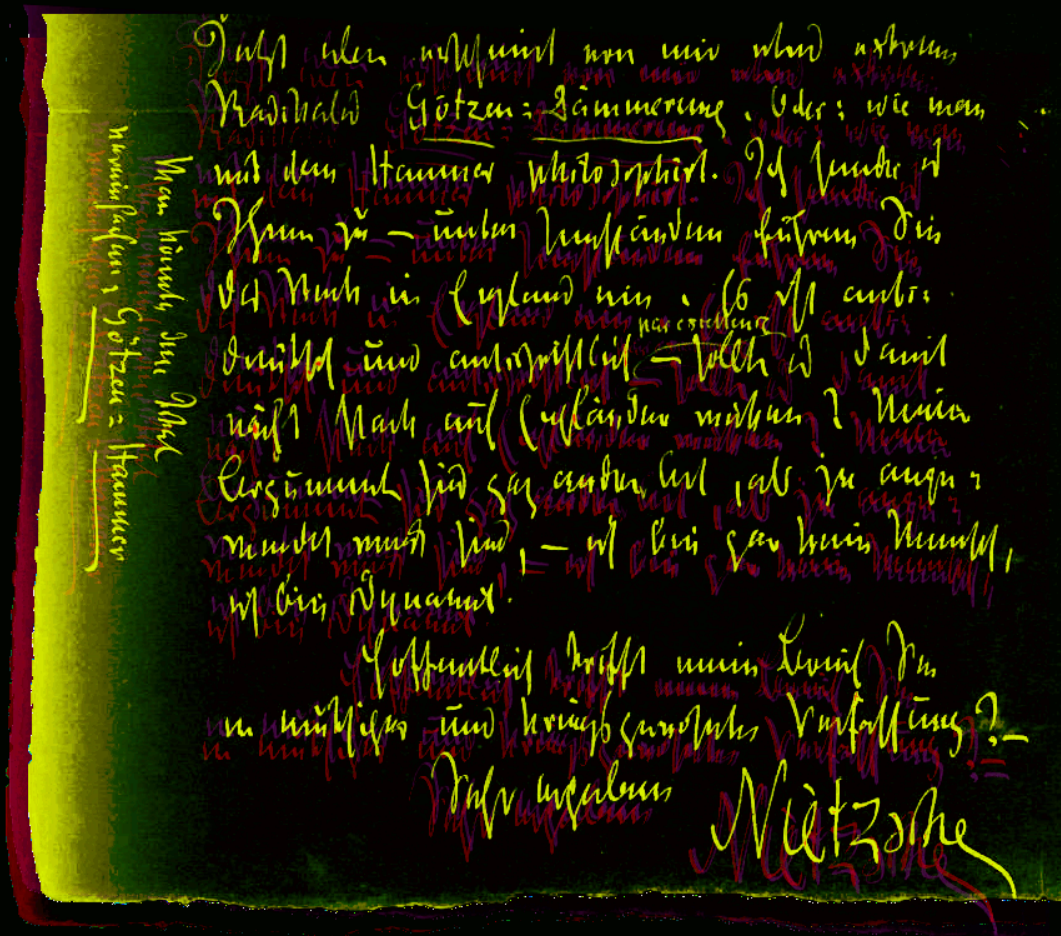 Jetzt eben erscheint von mir etwas extrem
Radikales Götzen=Dämmerung. Oder: wie man
mit dem Hammer philosophirt. Ich sende es
Ihnen zu — unter Umständen führen Sie
das Werk in England ein. Es ist anti=
deutsch und antichristlich par excellence — sollte es damit
nicht stark auf Engländer wirken? Meine
Argumente sind ganz andrer Art, als je ange=
wendet sind, — ich bin gar kein Mensch,
ich bin Dynamit.
Hoffentlich trifft mein Brief Sie
in muthiger und kriegsgewohnter Verfassung? —
Sehr ergeben
Nietzsche
Man könnte den Titel
vereinfachen, Götzen=Hammer